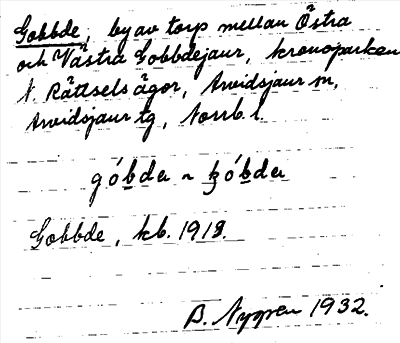 Gobbde, by av torp mellan Östra
och Västra Gobbdejaur, kronoparken
N. Rättsels ägor, Arvidsjaur sn,
Arvidsjaur tg, Norrb. l.
góbda ~ kóbda
Gobbde, kb. 1918.
B. Nygren 1932.